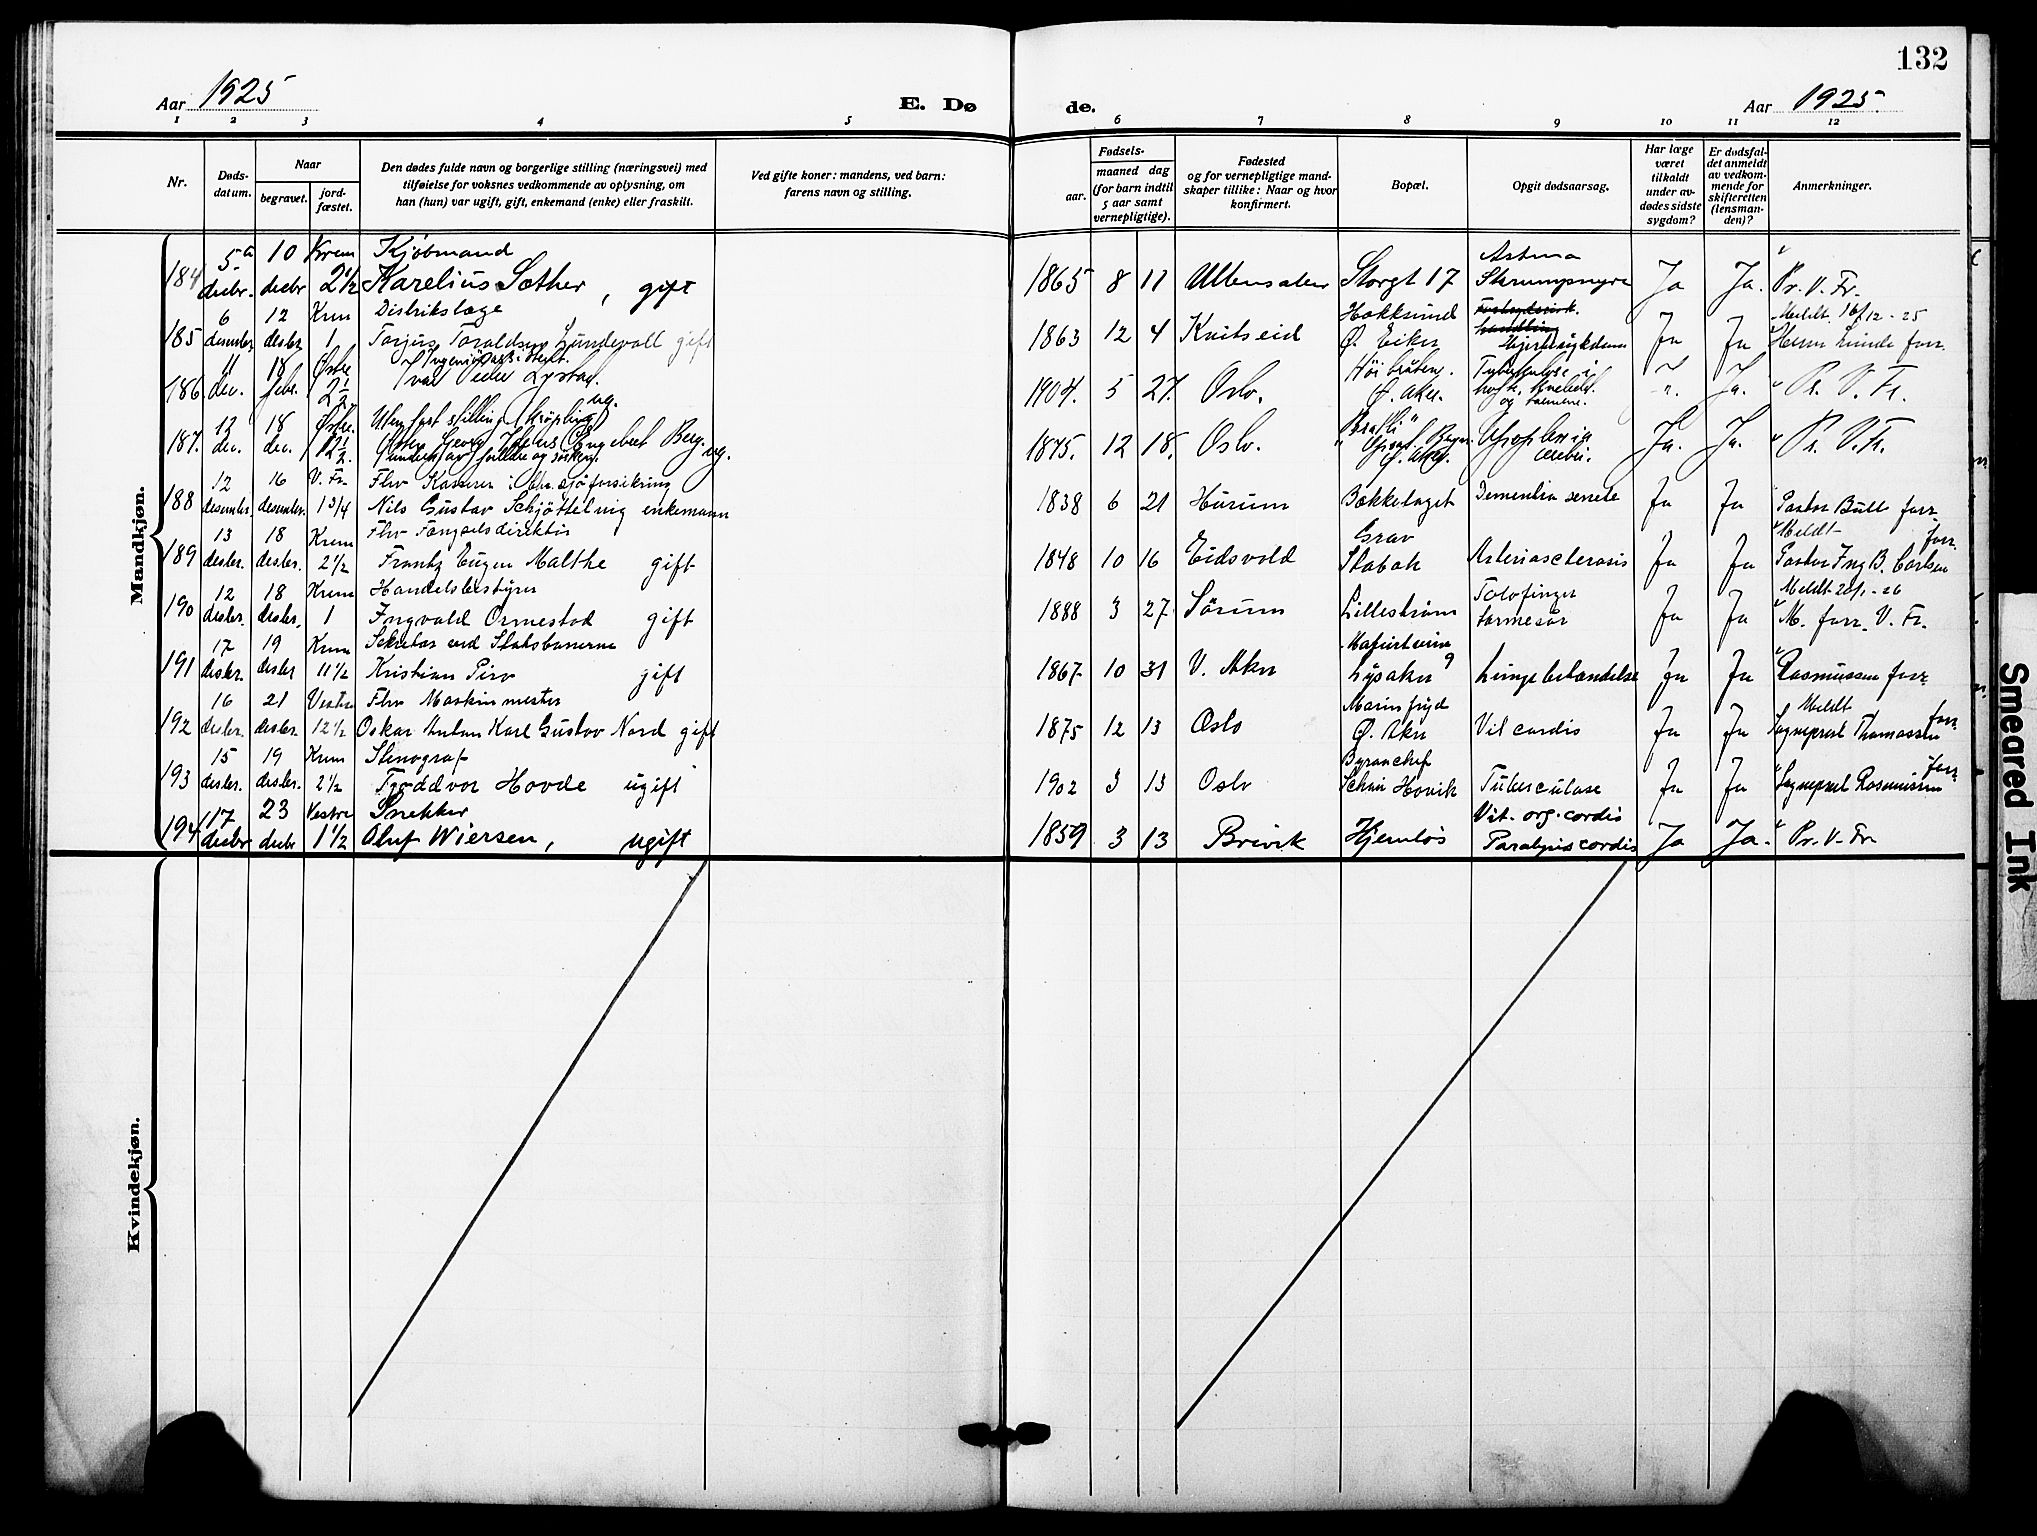 132
Aar 1925
E. Dø
de.
Aar 1925.
1 2 3 4 5 6 7 8 9 10 11 12
Nr.
Døds-
datum.
Naar
begravet.
jord-
fæstet.
Den dødes fulde navn og borgerlige stilling (næringsvei) med
tilføielse for voksnes vedkommende av oplysning, om
han (hun) var ugift, gift, enkemand (enke) eller fraskilt.
Ved gifte koner: mandens, ved barn:
farens navn og stilling.
Fødsels-
aar.
maaned dag
(for barn indtil
5 aar samt
vernepligtige).
Fødested
og for vernepligtige mand-
skaper tillike: Naar og hvor
konfirmert.
Bopæl.
Opgit dødsaarsag.
Har læge
været
tilkaldt
under av-
dødes sidste
sygdom?
Er dødsfal-
det anmeldt
av vedkom-
mende for
skifteretten
(lensman-
den)?
Anmerkninger.
Mandkjøn.
5 10 Krem Kjøbmand Astma
184 decbr. decbr 2 1/2 Karelius Sæther, gift 1865 8 11 Ullensaker Storgt 17 Skrumpnyre Ja Ja. Pr. V. Fr.
6 12 Krem Distrikslæge Hokksund Meldt 16/12-25
185 desember desbr 1 Torjus Toraldsen Lundevall gift 1863 12 4 Kviteseid Ø. Eiker Hjertesykdom Ja Ja Herm Lunde forr.
11 18 Østre Høibråten. Tuberkulose i
186 dec. febr. 2 1/2 Peder Lystad. 1904. 5 27. Oslo. Ø. Aker. Ja. Pr. V. Fr.
13 18 Østre. Uten fast stilling (krøpling) ug.
187. dec. dec. 12 1/2. Georg Engebret Berg. ug. 1875. 12 18. Oslo. Ø. Aker. Apoplexia cerebri. Ja. Ja. Pr. V. Fr.
12 16 V. Fr. Flrv Kasserer i sjøforsikring
188 desember desember. 1 3/4 Nils Gustav Schjøttelvig enkemann 1838 6 21 Hurum Bækkelaget Dementia senile Ja Ja Pastor Bull forr
13 18 Krem Fhv Fængselsdirektør Grav Meldt
189 desbr. desbr. 2 1/2 Frantz Eugen Malthe gift 1848 10 16 Eidsvold Stabæk Arteriosclerosis Ja Ja Pastor Ing B. Carlsen forr.
12 18 Krem Handelsbestyrer Tolvfinger Meldt 28/1-26
190 desbr. desbr. 1 Ingvald Ormestad gift 1888 3 27 Sørum Lillestrøm tarmesår Ja Ja M. forr. V. Fr.
17 19 Krem Sekretær ved Statsbanerne
191 desbr. desbr 11 1/2 Kristian Piro gift 1867 10 31 V. Aker Lysaker Lungebetændelse Ja Ja Rasmussen forr.
16 21 Vestre Fhv Maskinmester Marinfryd Meldt
192 desbr. desbr. 12 1/2 Oskar Anton Karl Gustav Nord gift 1875 12 13 Oslo Ø. Aker Vit cordis Ja Ja Sogneprest Thomassen forr.
15 19 Krem Stenograf Byråchef
193 desbr. desbr. 2 1/2 Trøddvor Hovde ugift 1902 3 13 Oslo Høvik Tuberculose Ja Ja Sogneprest Rasmussen forr
17 23 Vestre Snekker Vit. org. cordis
194 decbr decbr 1 1/2 Oluf Wiersen, ugift 1859 3 13 Brevik Hjemløs Paralysis cordis Ja Ja. Pr. V. Fr
Kvindekjøn.
Smeared Ink